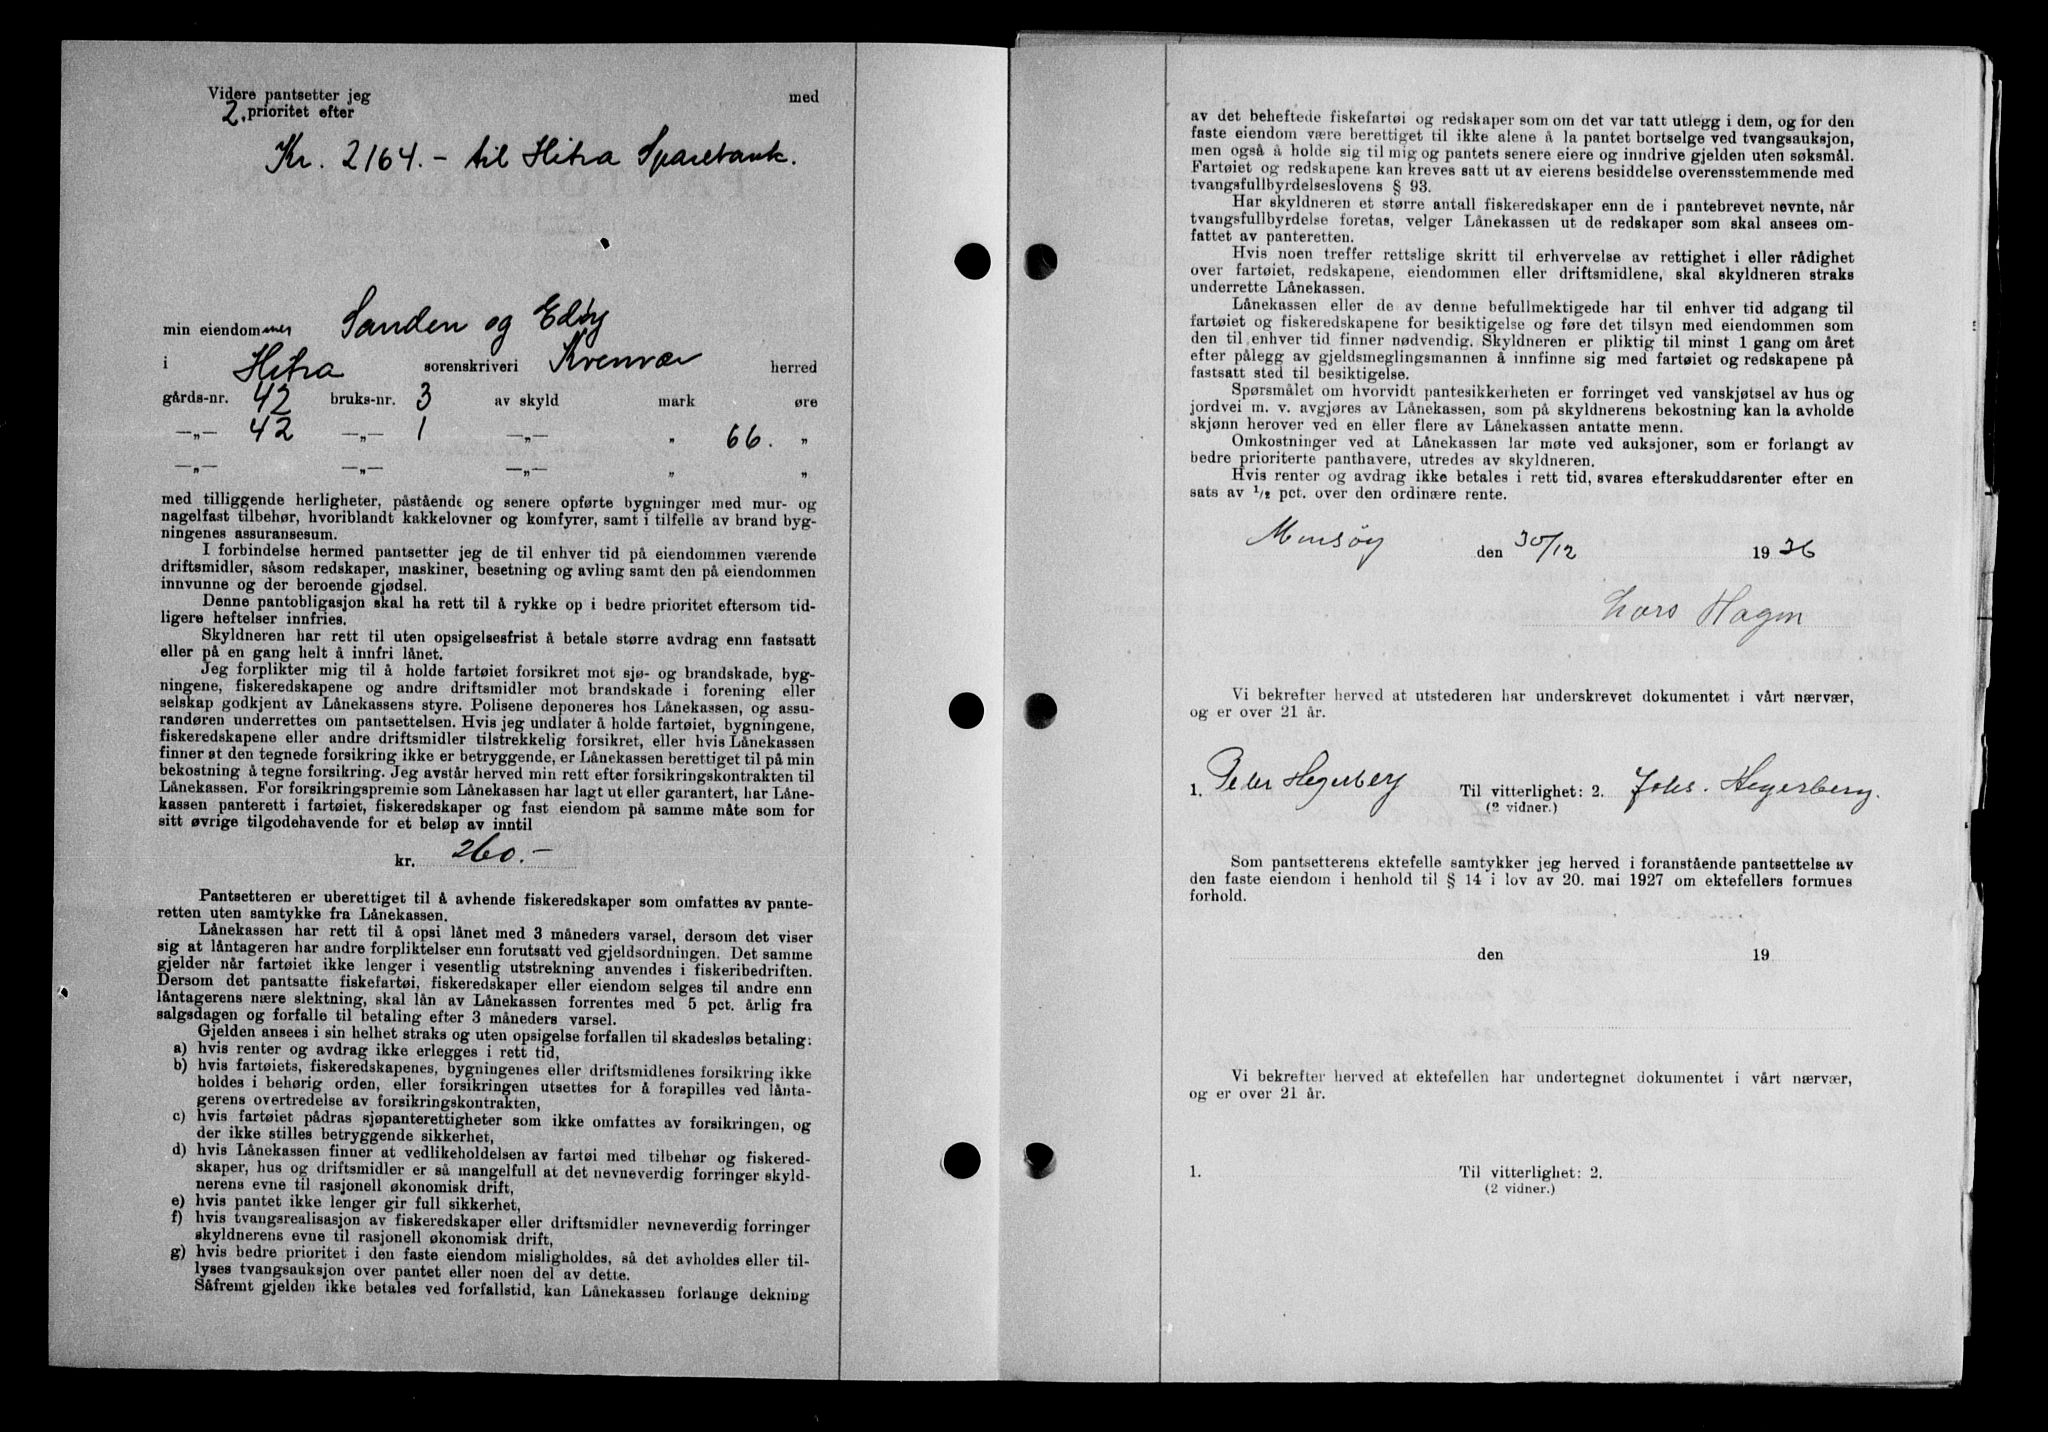 Videre pantsetter jeg med
2. prioritet efter
Kr. 2164.- til Hitra Sparebank.
min eiendommer Sanden og Edøy
i Hitra sorenskriveri Kvenvær herred
gårds-nr. 42 bruks-nr. 3 av skyld mark øre
—„— 42 —„— 1 —„— „ 66. „
—„— —„— —„— „ „
med tilliggende herligheter, påstående og senere opførte bygninger med mur- og
nagelfast tilbehør, hvoriblandt kakkelovner og komfyrer, samt i tilfelle av brand byg-
ningenes assuransesum.
I forbindelse hermed pantsetter jeg de til enhver tid på eiendommen værende
driftsmidler, såsom redskaper, maskiner, besetning og avling samt den på eiendommen
innvunne og der beroende gjødsel.
Denne pantobligasjon skal ha rett til å rykke op i bedre prioritet eftersom tid-
ligere heftelser innfries.
Skyldneren har rett til uten opsigelsesfrist å betale større avdrag enn fastsatt
eller på en gang helt å innfri lånet.
Jeg forplikter mig til å holde fartøiet forsikret mot sjø- og brandskade, byg-
ningene, fiskeredskapene og andre driftsmidler mot brandskade i forening eller
selskap godkjent av Lånekassens styre. Polisene deponeres hos Lånekassen, og assu-
randøren underrettes om pantsettelsen. Hvis jeg undlater å holde fartøiet, bygningene,
fiskeredskapene eller andre driftsmidler tilstrekkelig forsikret, eller hvis Lånekassen
finner at den tegnede forsikring ikke er betryggende, er Lånekassen berettiget til på min
bekostning å tegne forsikring. Jeg avstår herved min rett efter forsikringskontrakten til
Lånekassen. For forsikringspremie som Lånekassen har lagt ut eller garantert, har Låne-
kassen panterett i fartøiet, fiskeredskaper og fast eiendom på samme måte som for
sitt øvrige tilgodehavende for et beløp av inntil
kr. 260.-
Pantsetteren er uberettiget til å avhende fiskeredskaper som omfattes av pante-
retten uten samtykke fra Lånekassen.
Lånekassen har rett til å opsi lånet med 3 måneders varsel, dersom det viser
sig at låntageren har andre forpliktelser enn forutsatt ved gjeldsordningen. Det samme
gjelder når fartøiet ikke lenger i vesentlig utstrekning anvendes i fiskeribedriften.
Dersom det pantsatte fiskefartøi, fiskeredskaper eller eiendom selges til andre enn
låntagerens nære slektning, skal lån av Lånekassen forrentes med 5 pct. årlig fra
salgsdagen og forfalle til betaling efter 3 måneders varsel.
Gjelden ansees i sin helhet straks og uten opsigelse forfallen til skadesløs betaling:
a) hvis renter og avdrag ikke erlegges i rett tid,
b) hvis fartøiets, fiskeredskapenes, bygningenes eller driftsmidlenes forsikring ikke
holdes i behørig orden, eller forsikringen utsettes for å forspilles ved lånta-
gerens overtredelse av forsikringskontrakten,
c) hvis fartøiet pådras sjøpanterettigheter som ikke omfattes av forsikringen, og
der ikke stilles betryggende sikkerhet,
d) hvis Lånekassen finner at vedlikeholdelsen av fartøi med tilbehør og fiskered-
skaper, hus og driftsmidler er så mangelfull at det nevneverdig forringer skyld-
nerens evne til rasjonell økonomisk drift,
e) hvis pantet ikke lenger gir full sikkerhet,
f) hvis tvangsrealisasjon av fiskeredskaper eller driftsmidler nevneverdig forringer
skyldnerens evne til rasjonell økonomisk drift,
g) hvis bedre prioritet i den faste eiendom misligholdes, så det avholdes eller til-
lyses tvangsauksjon over pantet eller noen del av dette.
Såfremt gjelden ikke betales ved forfallstid, kan Lånekassen forlange dekning
av det beheftede fiskefartøi og redskaper som om det var tatt utlegg i dem, og for den
faste eiendom være berettiget til ikke alene å la pantet bortselge ved tvangsauksjon,
men også å holde sig til mig og pantets senere eiere og inndrive gjelden uten søksmål.
Fartøiet og redskapene kan kreves satt ut av eierens besiddelse overensstemmende med
tvangsfullbyrdelseslovens § 93.
Har skyldneren et større antall fiskeredskaper enn de i pantebrevet nevnte, når
tvangsfullbyrdelse foretas, velger Lånekassen ut de redskaper som skal ansees om-
fattet av panteretten.
Hvis noen treffer rettslige skritt til erhvervelse av rettighet i eller rådighet
over fartøiet, redskapene, eiendommen eller driftsmidlene, skal skyldneren straks
underrette Lånekassen.
Lånekassen eller de av denne befullmektigede har til enhver tid adgang til
fartøiet og fiskeredskapene for besiktigelse og føre det tilsyn med eiendommen som
den til enhver tid finner nødvendig. Skyldneren er pliktig til minst 1 gang om året
efter pålegg av gjeldsmeglingsmannen å innfinne sig med fartøiet og redskapene på
fastsatt sted til besiktigelse.
Spørsmålet om hvorvidt pantesikkerheten er forringet ved vanskjøtsel av hus og
jordvei m. v. avgjøres av Lånekassen, som på skyldnerens bekostning kan la avholde
skjønn herover ved en eller flere av Lånekassen antatte menn.
Omkostninger ved at Lånekassen lar møte ved auksjoner, som er forlangt av
bedre prioriterte panthavere, utredes av skyldneren.
Hvis renter og avdrag ikke betales i rett tid, svares efterskuddsrenter efter en
sats av 1/2 pct. over den ordinære rente.
den 30/12 1936
Lars Hagen
Vi bekrefter herved at utstederen har underskrevet dokumentet i vårt nærvær,
og er over 21 år.
1. Peder Hegerberg Til vitterlighet: 2. Johs. Hegerberg.
(2 vidner.)
Som pantsetterens ektefelle samtykker jeg herved i foranstående pantsettelse av
den faste eiendom i henhold til § 14 i lov av 20. mai 1927 om ektefellers formues
forhold.
den 19
Vi bekrefter herved at ektefellen har undertegnet dokumentet i vårt nærvær,
og er over 21 år.
1. Til vitterlighet: 2.
(2 vidner.)